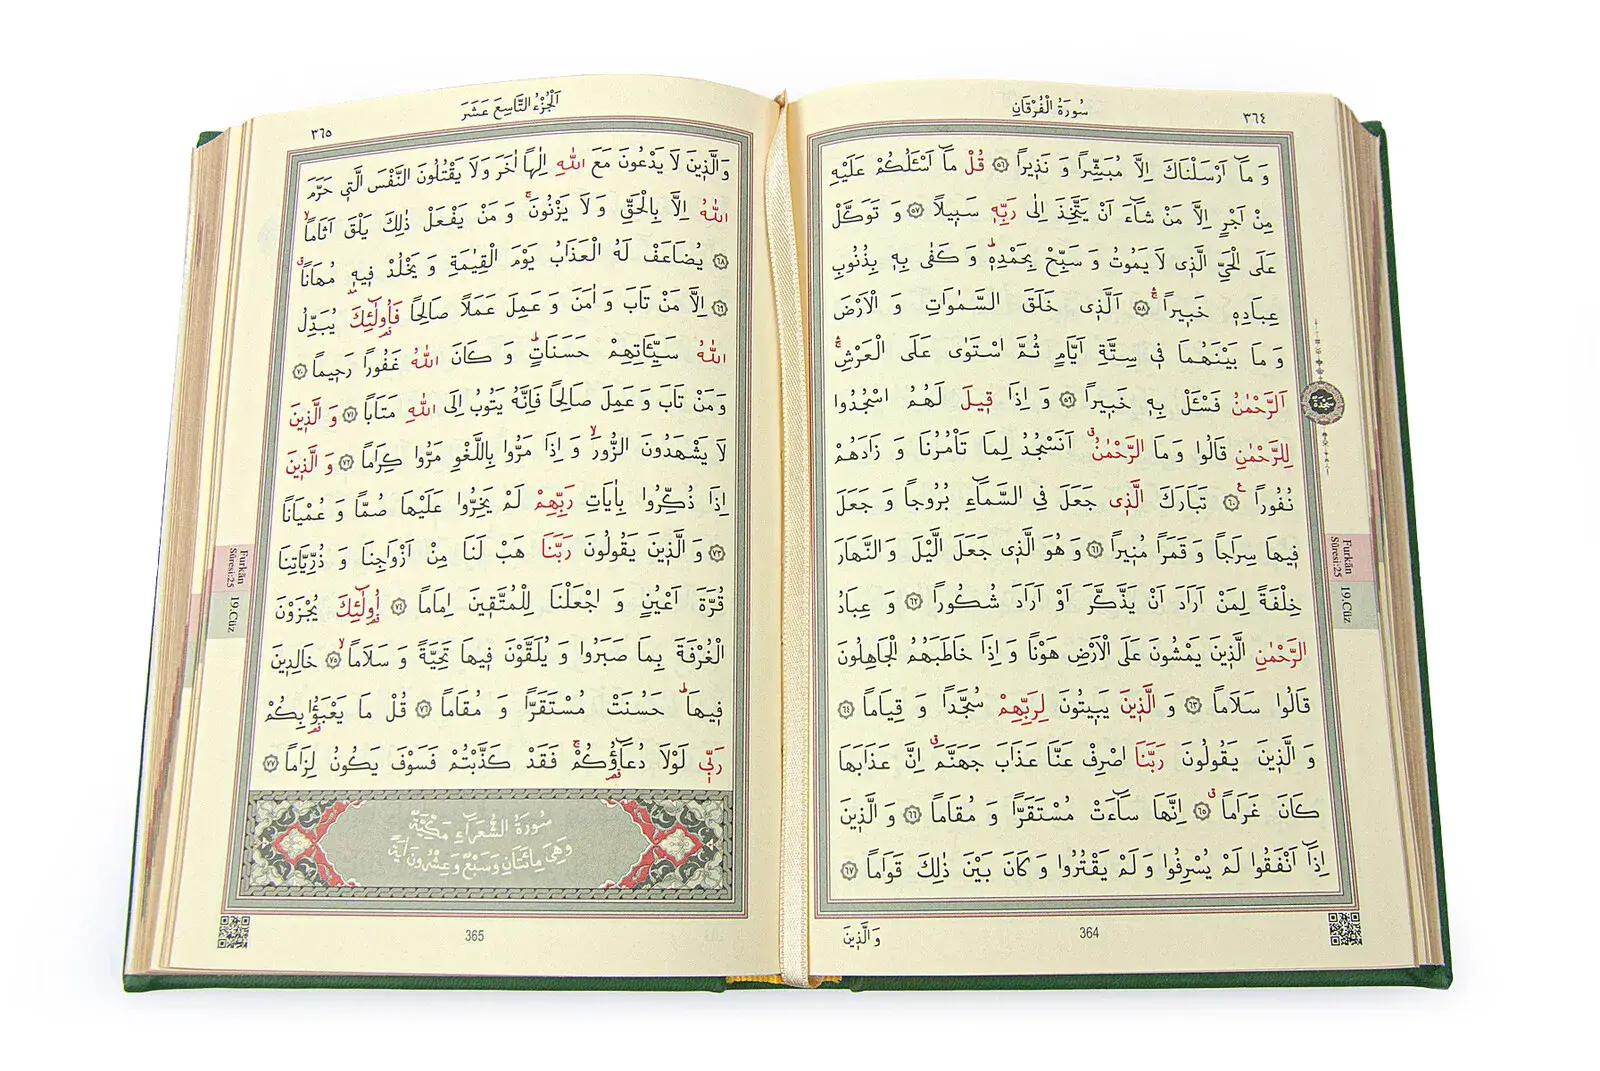 سُورَةُ الْفُرْقَانِ
٣٦٤
وَ مَٓا اَرْسَلْنَاكَ اِلَّا مُبَشِّرًا وَ نَذ۪يرًا ﴿٥٦﴾ قُلْ مَٓا اَسْـَٔلُكُمْ عَلَيْهِ
مِنْ اَجْرٍ اِلَّا مَنْ شَٓاءَ اَنْ يَتَّخِذَ اِلٰى رَبِّه۪ سَب۪يلًا ﴿٥٧﴾ وَ تَوَكَّلْ
عَلَى الْحَيِّ الَّذ۪ي لَا يَمُوتُ وَ سَبِّحْ بِحَمْدِه۪ۜ وَ كَفٰى بِه۪ بِذُنُوبِ
عِبَادِه۪ خَب۪يرًاۚۛ ﴿٥٨﴾ اَلَّذ۪ي خَلَقَ السَّمٰوَاتِ وَ الْاَرْضَ
وَ مَا بَيْنَهُمَا ف۪ي سِتَّةِ اَيَّامٍ ثُمَّ اسْتَوٰى عَلَى الْعَرْشِۚۛ
اَلرَّحْمٰنُ فَسْـَٔلْ بِه۪ خَب۪يرًا ﴿٥٩﴾ وَ اِذَا ق۪يلَ لَهُمُ اسْجُدُوا
لِلرَّحْمٰنِ قَالُوا وَ مَا الرَّحْمٰنُۗ اَنَسْجُدُ لِمَا تَأْمُرُنَا وَ زَادَهُمْ
نُفُورًا ﴿٦٠﴾ تَبَارَكَ الَّذ۪ي جَعَلَ فِي السَّمَٓاءِ بُرُوجًا وَ جَعَلَ
ف۪يهَا سِرَاجًا وَ قَمَرًا مُن۪يرًا ﴿٦١﴾ وَ هُوَ الَّذ۪ي جَعَلَ الَّيْلَ وَ النَّهَارَ
خِلْفَةً لِمَنْ اَرَادَ اَنْ يَذَّكَّرَ اَوْ اَرَادَ شُكُورًا ﴿٦٢﴾ وَ عِبَادُ
الرَّحْمٰنِ الَّذ۪ينَ يَمْشُونَ عَلَى الْاَرْضِ هَوْنًا وَ اِذَا خَاطَبَهُمُ الْجَاهِلُونَ
قَالُوا سَلَامًا ﴿٦٣﴾ وَ الَّذ۪ينَ يَب۪يتُونَ لِرَبِّهِمْ سُجَّدًا وَ قِيَامًا ﴿٦٤﴾
وَ الَّذ۪ينَ يَقُولُونَ رَبَّنَا اصْرِفْ عَنَّا عَذَابَ جَهَنَّمَۗ اِنَّ عَذَابَهَا
كَانَ غَرَامًاۗ ﴿٦٥﴾ اِنَّهَا سَٓاءَتْ مُسْتَقَرًّا وَ مُقَامًا ﴿٦٦﴾ وَ الَّذ۪ينَ
اِذَٓا اَنْفَقُوا لَمْ يُسْرِفُوا وَ لَمْ يَقْتُرُوا وَ كَانَ بَيْنَ ذٰلِكَ قَوَامًا ﴿٦٧﴾
سَجْدَة
Furkān
Sûresi:25
19.Cüz
وَ الَّذ۪ينَ
364
اَلْجُزْءُ التَّاسِعَ عَشَرَ
٣٦٥
وَ الَّذ۪ينَ لَا يَدْعُونَ مَعَ اللّٰهِ اِلٰهًا اٰخَرَ وَ لَا يَقْتُلُونَ النَّفْسَ الَّت۪ي حَرَّمَ
اللّٰهُ اِلَّا بِالْحَقِّ وَ لَا يَزْنُونَۚ وَ مَنْ يَفْعَلْ ذٰلِكَ يَلْقَ اَثَامًاۙ
﴿٦٨﴾ يُضَاعَفْ لَهُ الْعَذَابُ يَوْمَ الْقِيٰمَةِ وَ يَخْلُدْ ف۪يه۪ مُهَانًاۗ
﴿٦٩﴾ اِلَّا مَنْ تَابَ وَ اٰمَنَ وَ عَمِلَ عَمَلًا صَالِحًا فَاُو۬لٰٓئِكَ يُبَدِّلُ
اللّٰهُ سَيِّـَٔاتِهِمْ حَسَنَاتٍۜ وَ كَانَ اللّٰهُ غَفُورًا رَح۪يمًا ﴿٧٠﴾
وَ مَنْ تَابَ وَ عَمِلَ صَالِحًا فَاِنَّهُ يَتُوبُ اِلَى اللّٰهِ مَتَابًا ﴿٧١﴾ وَ الَّذ۪ينَ
لَا يَشْهَدُونَ الزُّورَۙ وَ اِذَا مَرُّوا بِاللَّغْوِ مَرُّوا كِرَامًا ﴿٧٢﴾ وَ الَّذ۪ينَ
اِذَا ذُكِّرُوا بِاٰيَاتِ رَبِّهِمْ لَمْ يَخِرُّوا عَلَيْهَا صُمًّا وَ عُمْيَانًا
﴿٧٣﴾ وَ الَّذ۪ينَ يَقُولُونَ رَبَّنَا هَبْ لَنَا مِنْ اَزْوَاجِنَا وَ ذُرِّيَّاتِنَا
قُرَّةَ اَعْيُنٍ وَ اجْعَلْنَا لِلْمُتَّق۪ينَ اِمَامًا ﴿٧٤﴾ اُو۬لٰٓئِكَ يُجْزَوْنَ
الْغُرْفَةَ بِمَا صَبَرُوا وَ يُلَقَّوْنَ ف۪يهَا تَحِيَّةً وَ سَلَامًاۙ ﴿٧٥﴾ خَالِد۪ينَ
ف۪يهَاۜ حَسُنَتْ مُسْتَقَرًّا وَ مُقَامًا ﴿٧٦﴾ قُلْ مَا يَعْبَؤُ۬ا بِكُمْ
رَبّ۪ي لَوْلَا دُعَٓاؤُ۬كُمْۚ فَقَدْ كَذَّبْتُمْ فَسَوْفَ يَكُونُ لِزَامًا ﴿٧٧﴾
سُورَةُ الشُّعَرَٓاءِ مَكِّيَّةٌ
وَهِيَ مِائَتَانِ وَسَبْعٌ وَعِشْرُونَ اٰيَةً
Furkān
Sûresi:25
19.Cüz
365